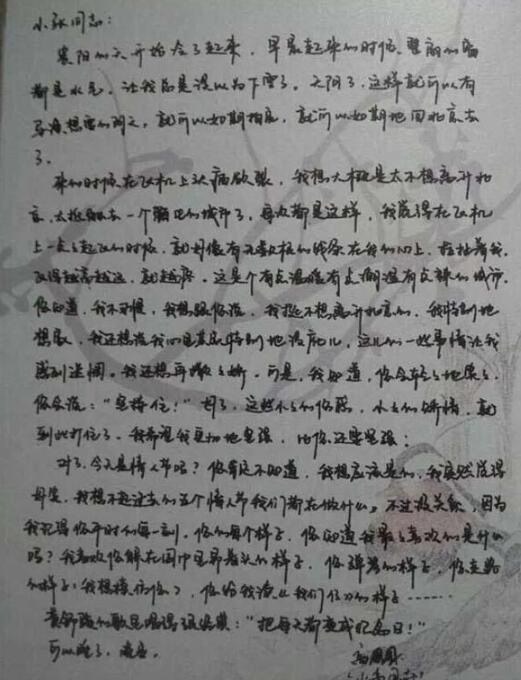 小张同志：
贵阳的天开始冷了起来，早晨起来的时候，里的
都是水气，让我总是误以为下雪了。天阴了，这样就可以有
的阴天，就可以如期相见，就可以如期地回北京去
了。
来的时候在飞机上头痛欲裂，我想大概是太不想离开北
京，太抵触去一个陌生的城市了，每次都是这样，我觉得在飞机
上一点点起飞的时候，就好像有无数根的线系在我的心上，拉扯着我，
飞得越高越远，就越疼。这是个有点温暖有点潮湿有点辣的城市，
你知道，我不习惯，我想跟你说，我挺不想离开北京的，我特别地
想家，我还想说我特别地没底儿，这儿的一些事情让我
感到迷惘。我还想再撒点娇。可是，我知道，你会轻轻地笑笑，
你会说：“坚持住！”对了，这些小小的，小小的矫情，就
到此打住了。我希望我更加地坚强，比你还要坚强；
对了，今天是情人节吗？你肯定不知道，我想应该是的，我突然觉得
，我想不起过去的五个情人节我们都在做什么。不过没关系，因为
我记得你平时的每一刻，你的每个样子，你知道我最喜欢的是什么
吗？我喜欢你的样子，你弹琴的样子，你走路
的样子（我想模仿你），你给我读《我们仨》的样子……
黄舒骏的歌里唱得：“把每天都变成纪念日！”
可以睡了，晚安。